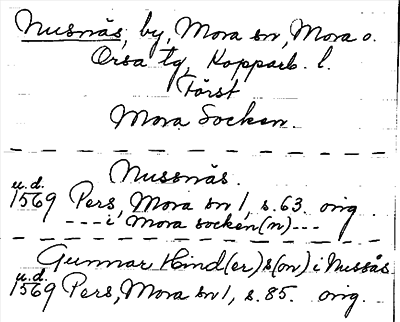 Nusnäs, by, Mora sn, Mora o.
Orsa tg, Kopparb. l.
Först
Mora Socken.
Nussnäs.
u.d.
1569 Pers, Mora sn 1, s. 63. orig.
---i Mora socken(n)---
Gunnar Hind(er)s(on) i Nussås
u.d.
1569 Pers, Mora sn 1, s. 85. orig.